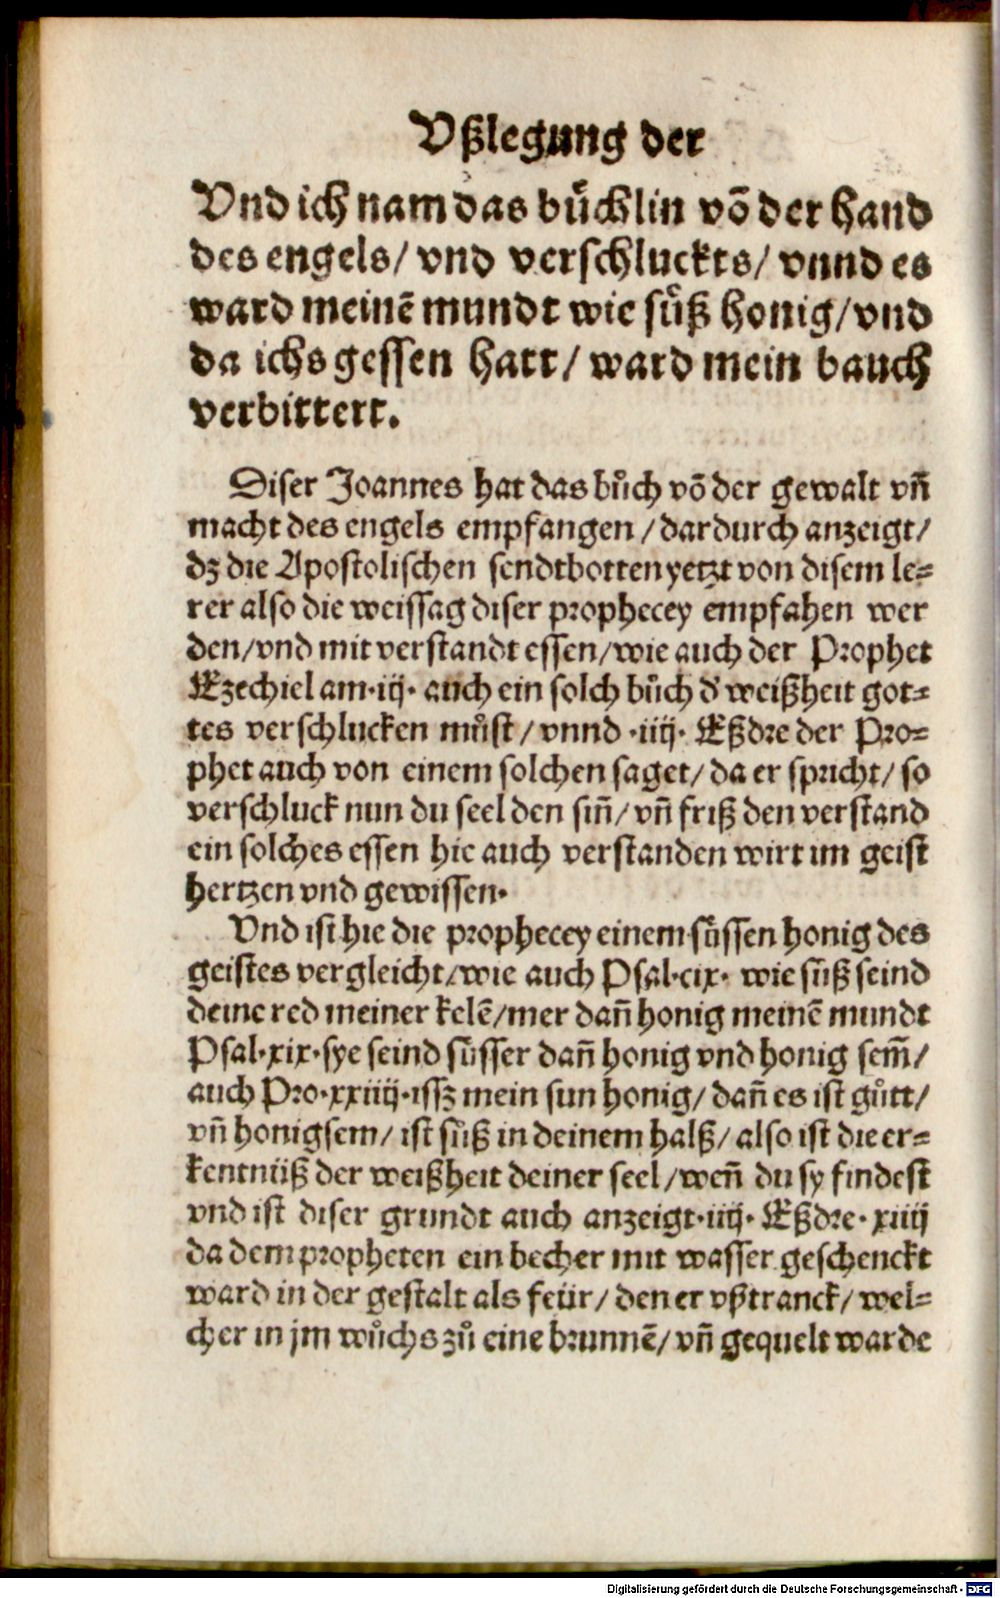 Vßlegung der
Vnd ich nam das bůchlin võ der hand
des engels/ vnd verschluckts/ vnnd es
ward meinẽ mundt wie sůß honig/ vnd
da ichs gessen hatt/ ward mein bauch
verbittert.
Diser Joannes hat das bůch võ der gewalt vñ
macht des engels empfangen /dardurch anzeigt/
dz die Apostolischen sendtbotten yetzt von disem le-
rer also die weissag diser prophecey empfahen wer
den/vnd mit verstandt essen/wie auch der Prophet
Ezechiel am.iij. auch ein solch bůch d' weißheit got-
tes verschlucken můst/ vnnd .iiij. Eßdre der Pro-
phet auch von einem solchen saget/ da er spricht/ so
verschluck nun du seel den siñ/ vñ friß den verstand
ein solches essen hie auch verstanden wirt im geist
hertzen vnd gewissen.
Vnd ist hie die prophecey einem sůssen honig des
geistes vergleicht/wie auch Psal.cix. wie sůß seind
deine red meiner kelẽ/mer dañ honig meinẽ mundt
Psal.xix.sye seind sůsser dañ honig vnd honig sem̃/
auch Pro.xxiiij.issz mein sun honig/ dañ es ist gůtt/
vñ honigsem/ ist sůß in deinem halß/ also ist die er-
kentnüß der weißheit deiner seel/weñ du sy findest
vnd ist diser grundt auch anzeigt.iiij. Eßdre.xiiij
da dem propheten ein becher mit wasser geschenckt
ward in der gestalt als feür/ den er vßtranck/ wel-
cher in jm wůchs zů eine brunnẽ/ vñ gequelt warde
Digitalisierung gefördert durch die Deutsche Forschungsgemeinschaft - DFG